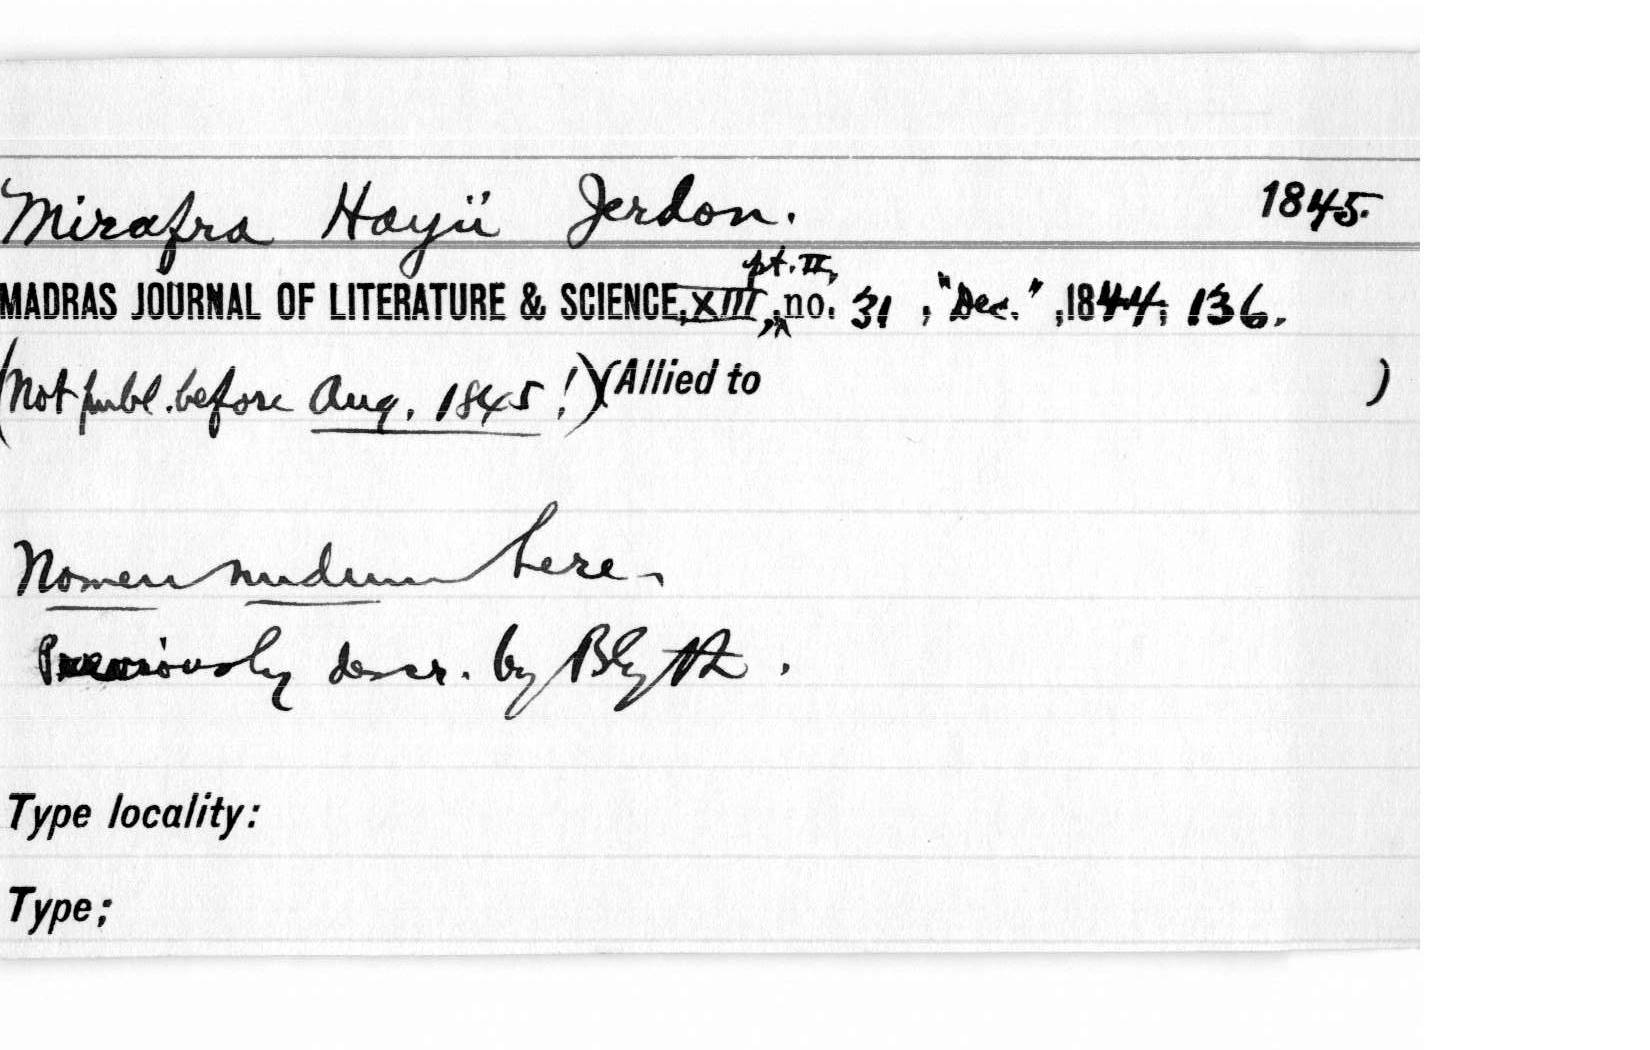 Mirafra Hayii Jerdon. 1845.
MADRAS JOURNAL OF LITERATURE & SCIENCE, XIII, pt. II, no. 31, "Dec.", 1844, 136.
(Not publ. before Aug. 1845!) (Allied to )
Nomen nudum here.
Previously descr. by Blyth.
Type locality:
Type;